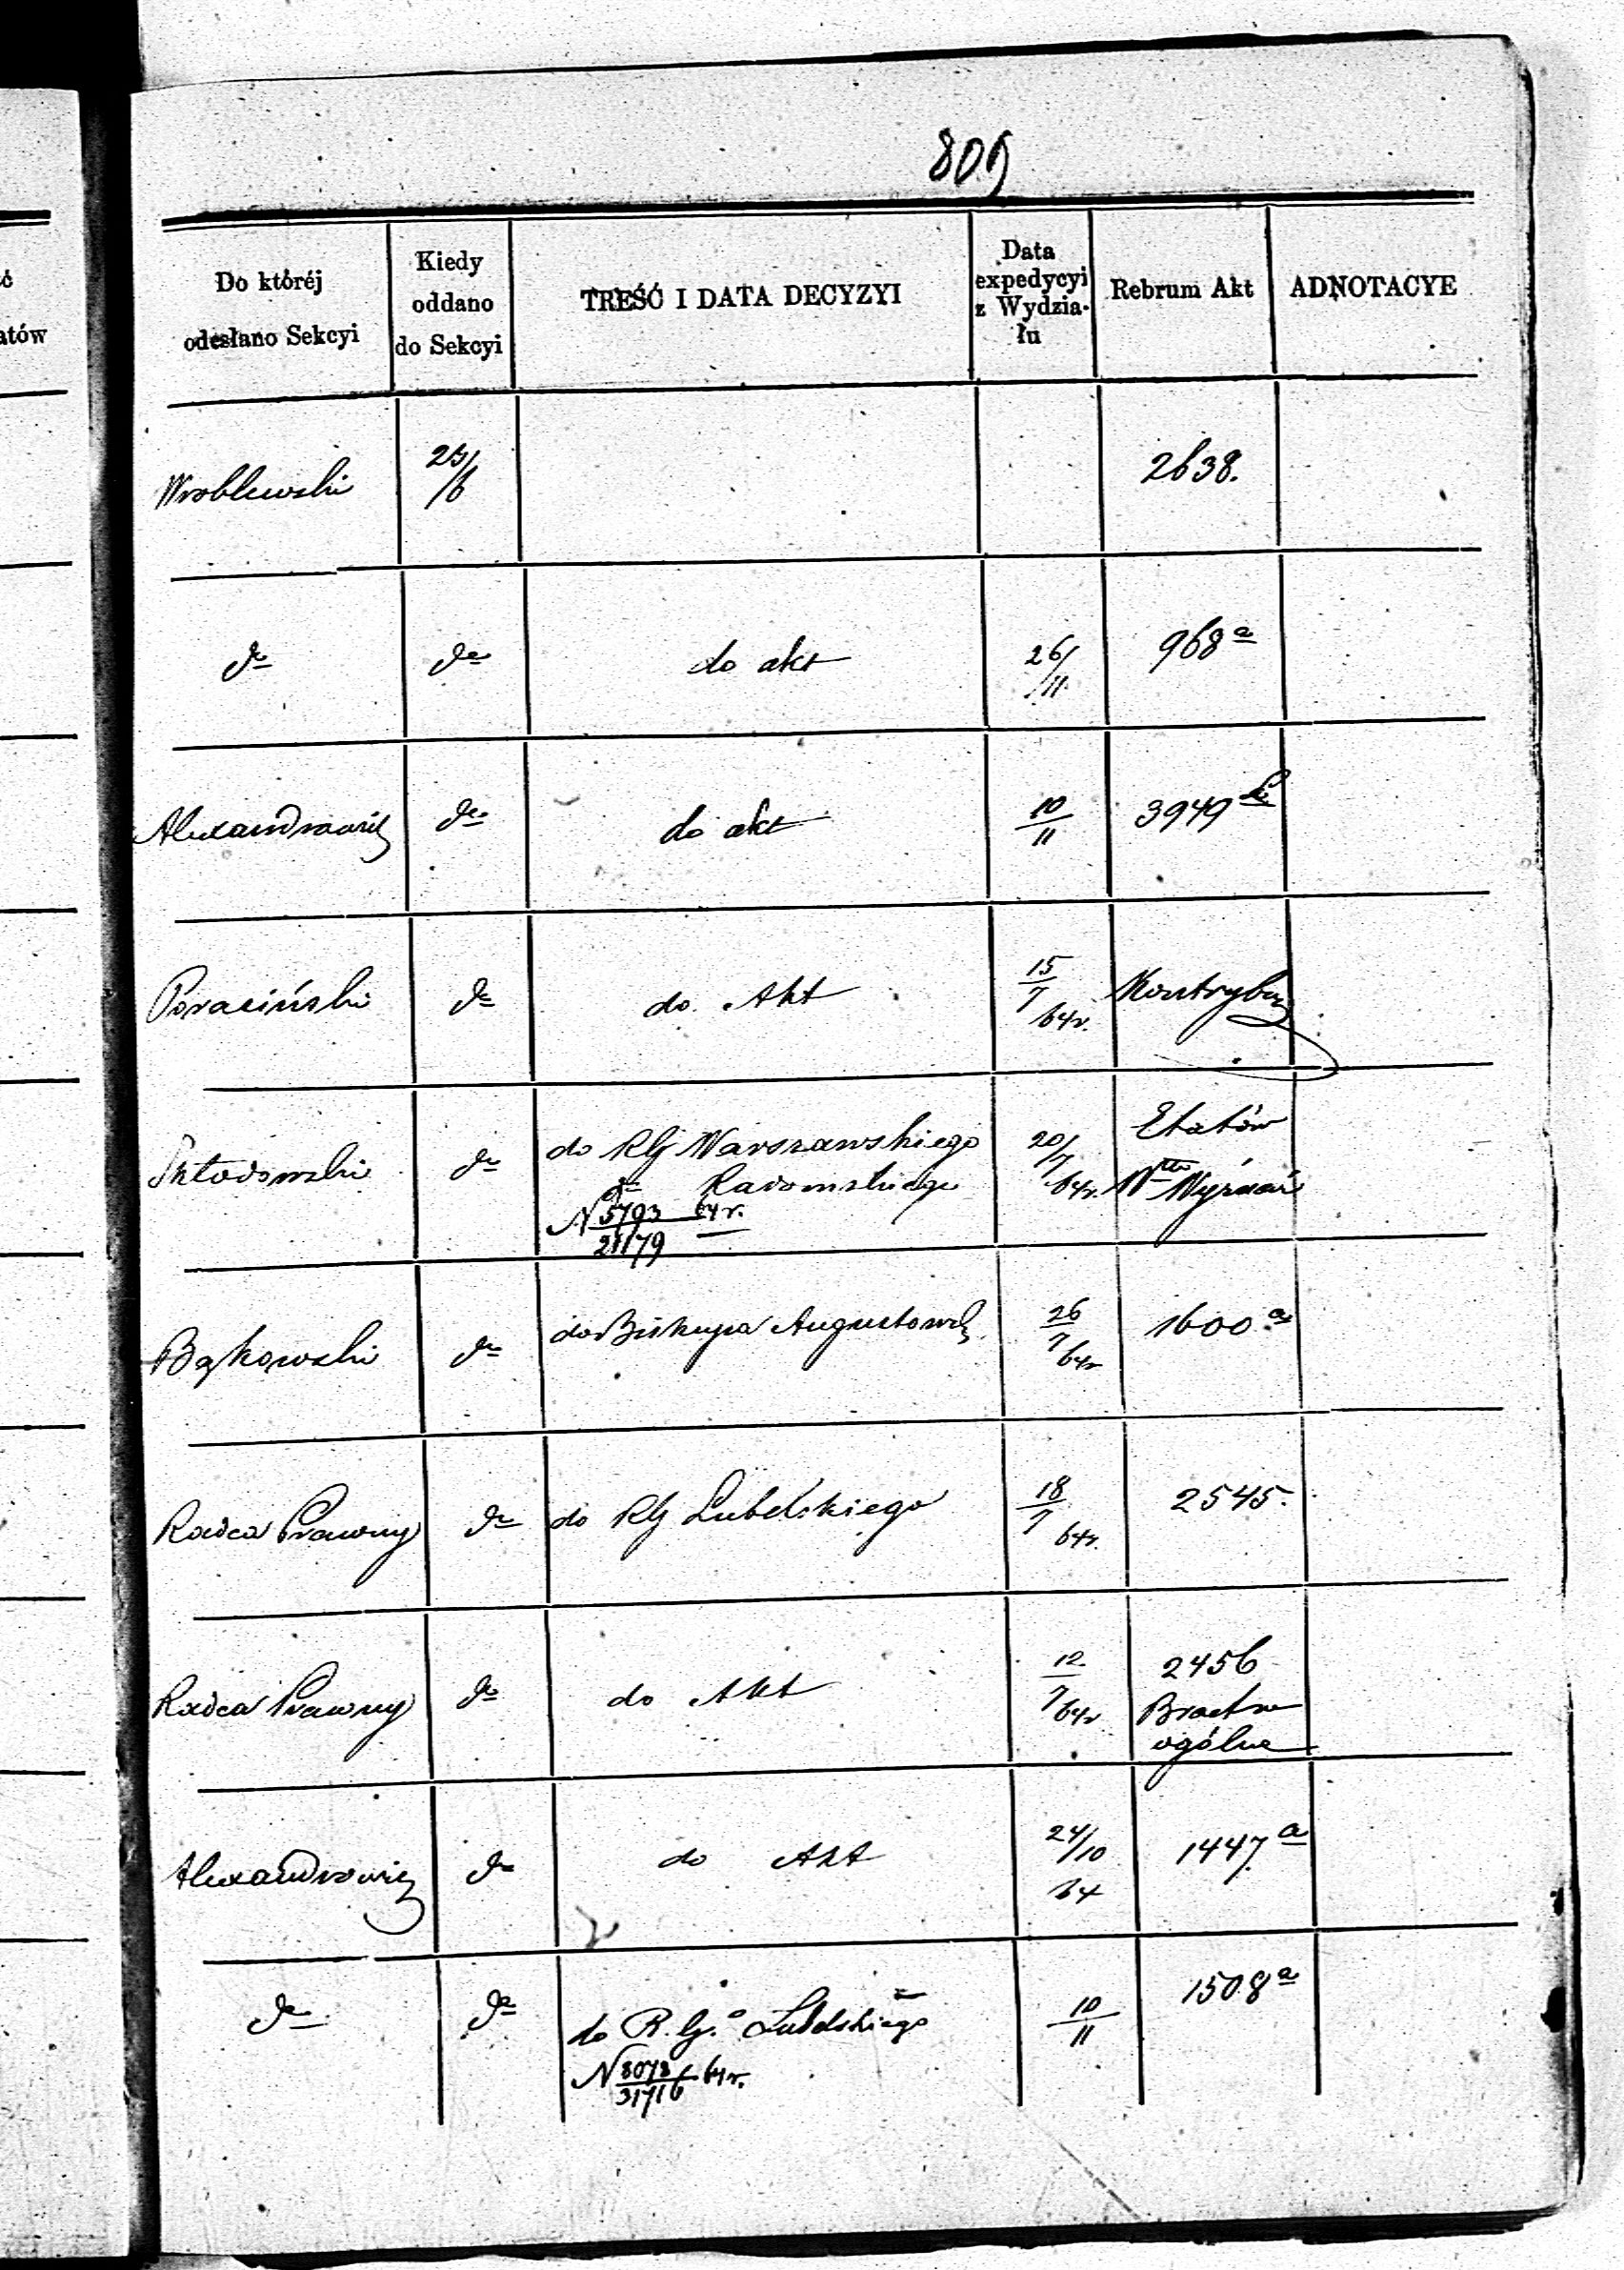 809
ć
atów
Do któréj
odesłano Sekcyi
Kiedy
oddano
do Sekcyi
TREŚĆ I DATA DECYZYI
Data
expedycyi
z Wydzia-
łu
Rebrum Akt
ADNOTACYE
Wroblewski
25/6
2638.
do
do
do akt
26/11
968 a
Alexandrowicz
do
do akt
10/11
3949
do
do Akt
15/7 64r.
Kontrybuc
do
do RG Warszawskiego
do Radomskiego
N 5793/21179 64r.
20/7 64r.
Etatów
Wyznań
Bąkowski
do
do Biskupa Augustowsk
26/7 64r
1600 a
Radca Prawny
do
do RG Lubelskiego
18/7 64r.
2545.
Radca Prawny
do
do Akt
12/7 64r
2456
Bractw
ogólne
Alexandrowicz
do
do Akt
24/10 64
1447 a
do
do
do R. G. Lubelskiego
N 8078/31716 64r.
10/11
1508 a